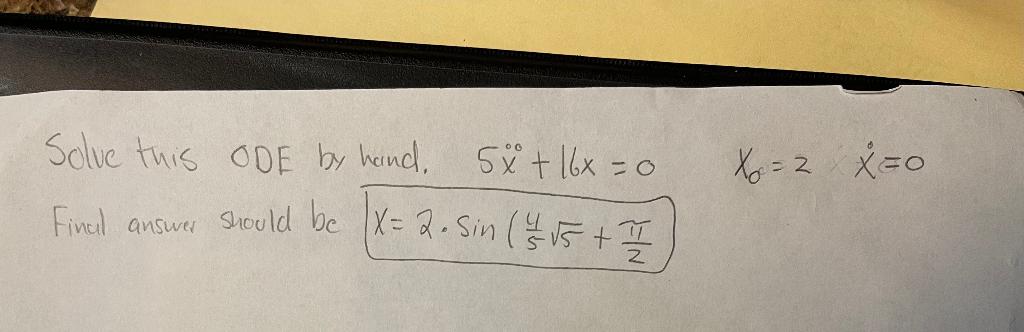 Solve this ODE by hand. 5ẍ + 16x = 0 x₀ = 2 ẋ = 0
Final answer should be x = 2 · sin ( 4/5 √5 + π/2